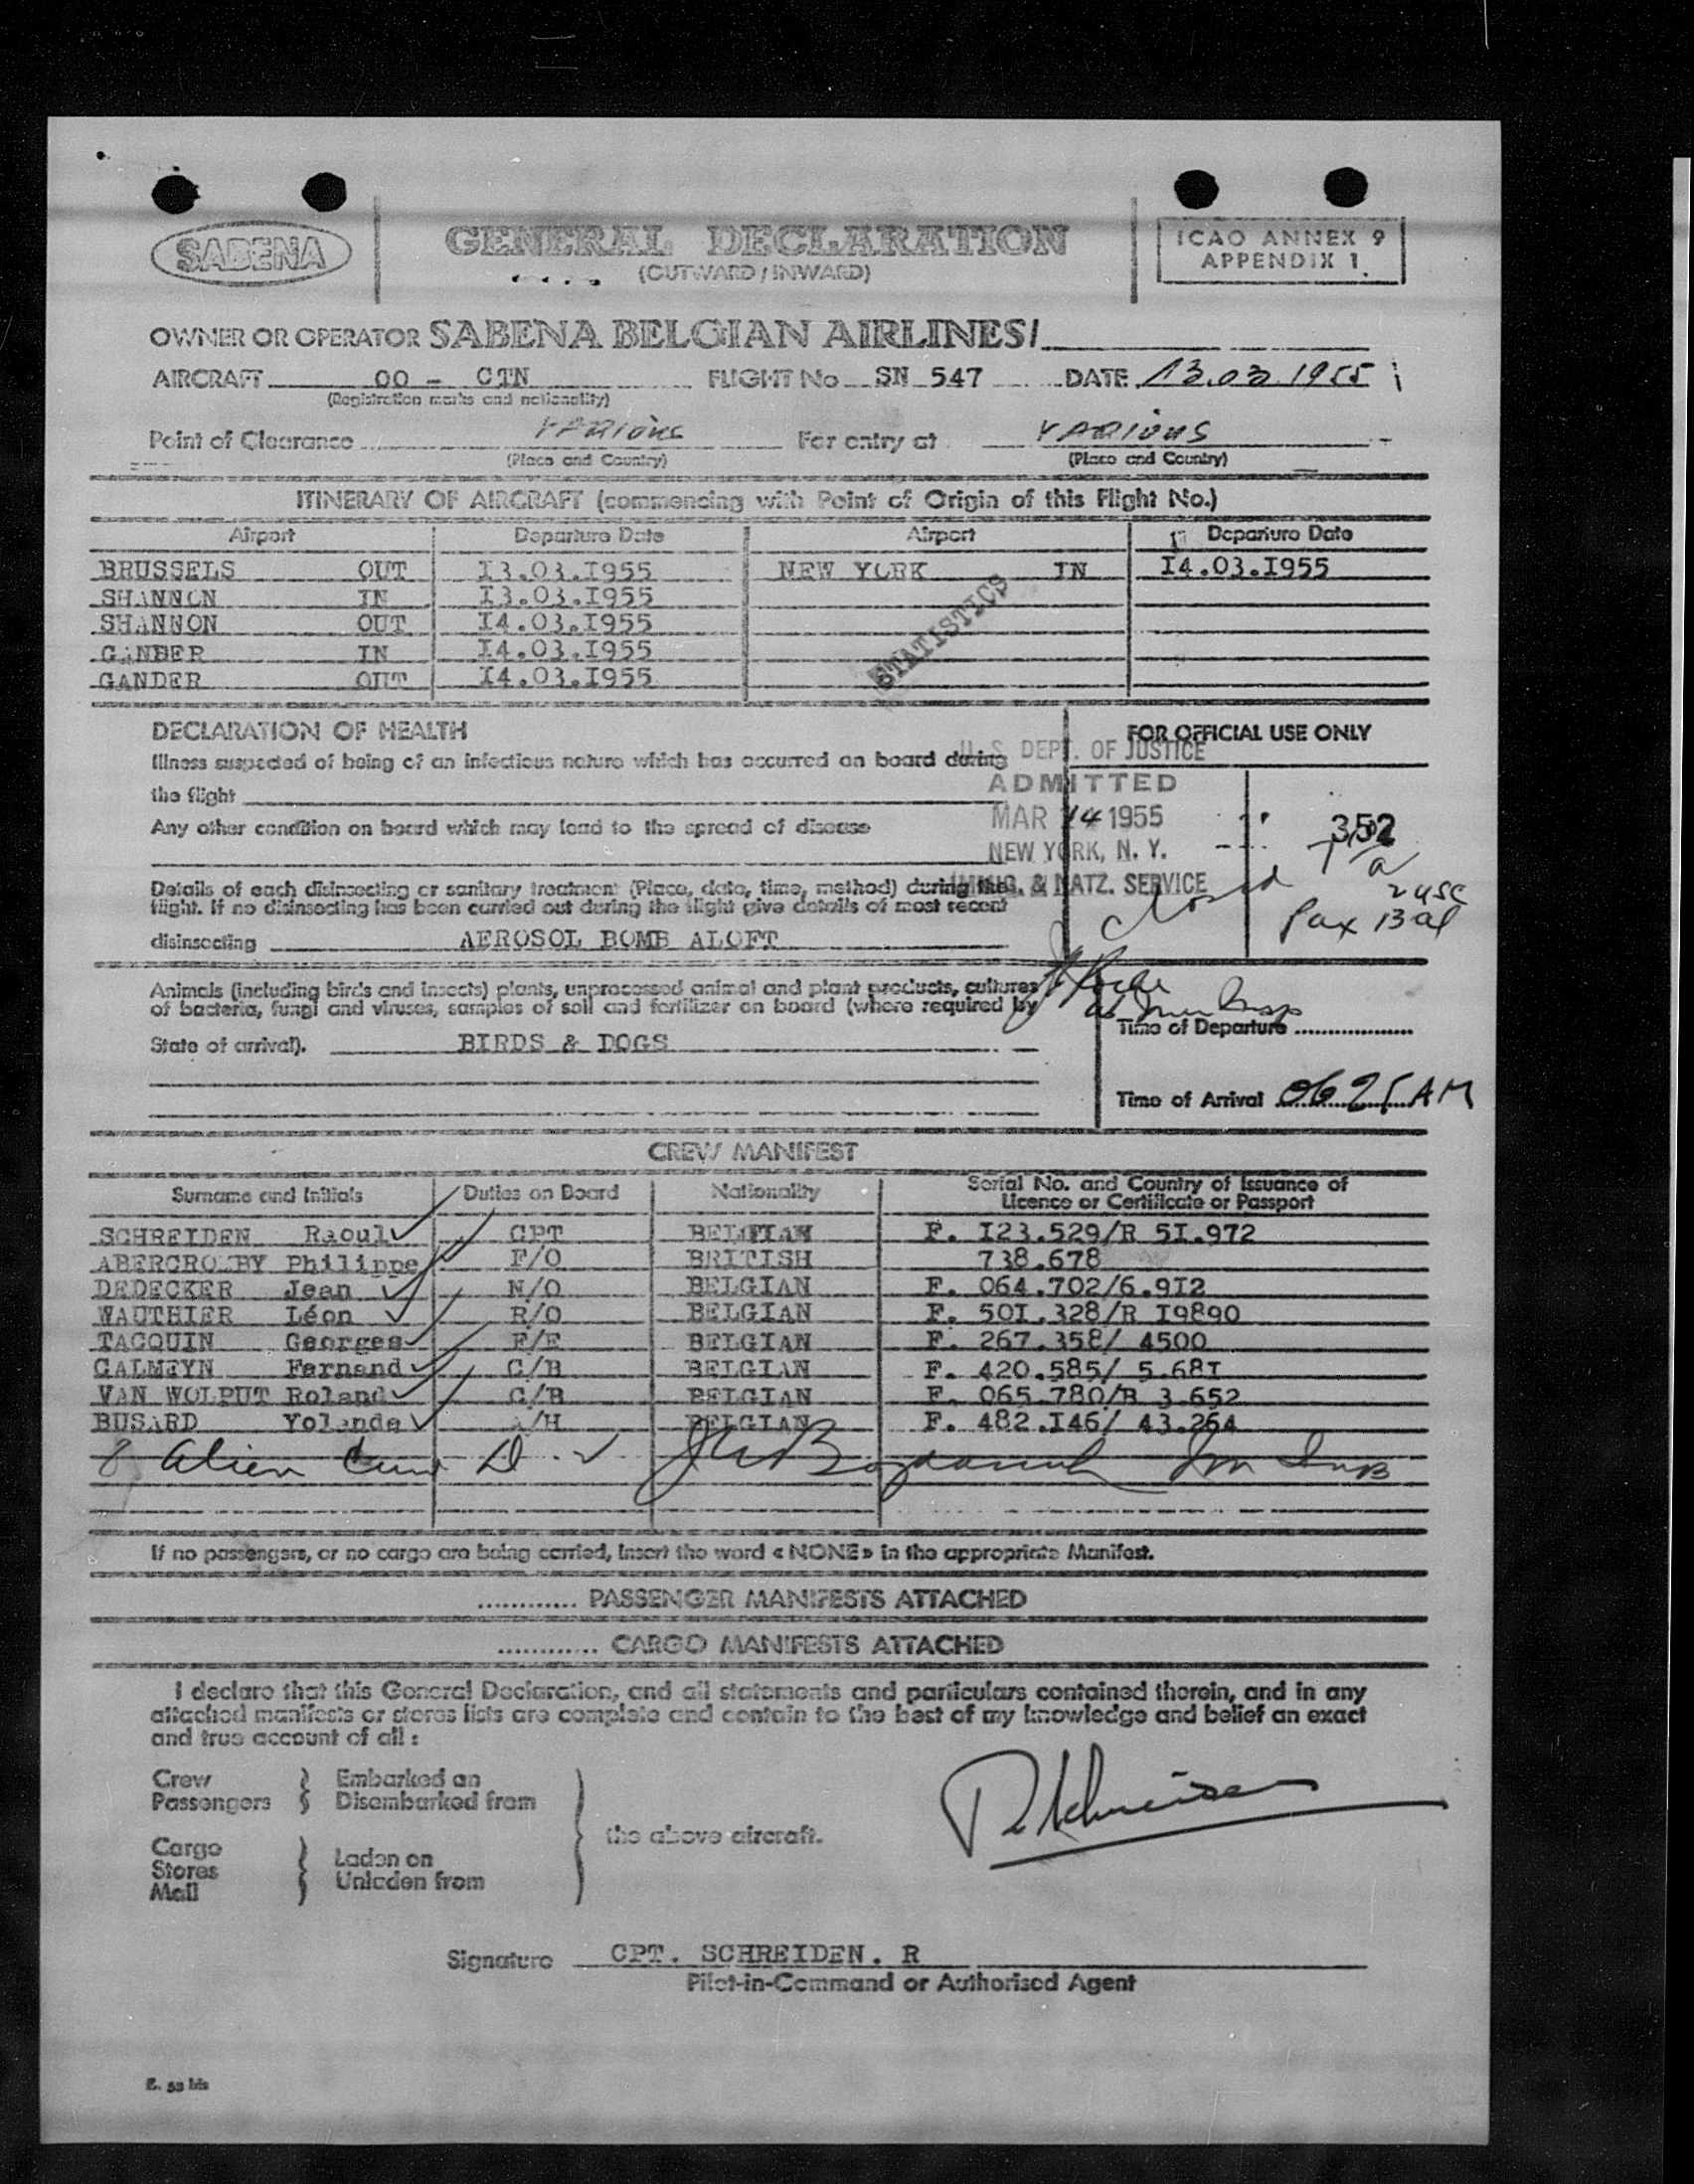 SABENA
GENERAL DECLARATION
(OUTWARD / INWARD)
ICAO ANNEX 9
APPENDIX 1.
OWNER OR OPERATOR SABENA BELGIAN AIRLINES/
AIRCRAFT OO - CTN FLIGHT No SN 547 DATE 13.03.1955
(Registration marks and nationality)
Point of Clearance VARIOUS For entry at VARIOUS
(Place and Country) (Place and Country)
ITINERARY OF AIRCRAFT (commencing with Point of Origin of this Flight No.)
Airport Departure Date Airport Departure Date
BRUSSELS OUT I3.03.I955 NEW YORK IN I4.03.I955
SHANNON IN I3.03.I955
SHANNON OUT I4.03.I955
GANDER IN I4.03.I955
GANDER OUT I4.03.I955
STATISTICS
DECLARATION OF HEALTH
FOR OFFICIAL USE ONLY
Illness suspected of being of an infectious nature which has occurred on board during
the flight
Any other condition on board which may lead to the spread of disease
U. S. DEPT. OF JUSTICE
ADMITTED
MAR 14 1955
NEW YORK, N. Y.
IMMIG. & NATZ. SERVICE
352
2 usc
Pax Bal
Details of each disinsecting or sanitary treatment (Place, date, time, method) during the
flight. If no disinsecting has been carried out during the flight give details of most recent
disinsecting AEROSOL BOMB ALOFT
Animals (including birds and insects) plants, unprocessed animal and plant products, cultures
of bacteria, fungi and viruses, samples of soil and fertilizer on board (where required by
State of arrival). BIRDS & DOGS
Time of Departure
Time of Arrival 0625 AM
CREW MANIFEST
Surname and Initials Duties on Board Nationality Serial No. and Country of Issuance of
Licence or Certificate or Passport
SCHREIDEN Raoul CPT BELGIAN F. I23.529/R 5I.972
ABERCROMBY Philippe F/O BRITISH 738.678
DEDECKER Jean N/O BELGIAN F. 064.702/6.9I2
WAUTHIER Léon R/O BELGIAN F. 50I.328/R I9890
TACQUIN Georges F/E BELGIAN F. 267.358/ 4500
GALMEYN Fernand C/B BELGIAN F. 420.585/ 5.68I
VAN WOLPUT Roland C/B BELGIAN F. 065.780/R 3.652
BUSARD Yolande A/H BELGIAN F. 482.I46/ 43.264
8 Alien Crew D.
If no passengers, or no cargo are being carried, insert the word « NONE » in the appropriate Manifest.
............ PASSENGER MANIFESTS ATTACHED
............ CARGO MANIFESTS ATTACHED
I declare that this General Declaration, and all statements and particulars contained therein, and in any
attached manifests or stores lists are complete and contain to the best of my knowledge and belief an exact
and true account of all :
Crew Embarked on
Passengers Disembarked from
the above aircraft.
Cargo
Stores Laden on
Mail Unladen from
Signature CPT. SCHREIDEN. R
Pilot-in-Command or Authorised Agent
E. 53 bis